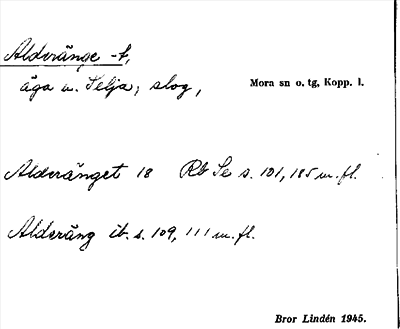 Alderänge -t,
äga u. Selja; slog,
Mora sn o. tg, Kopp. l.
Alderänget 18 Rb Se s. 101, 185 m. fl.
Alderäng ib. s. 109, 111 m. fl.
Bror Lindén 1945.